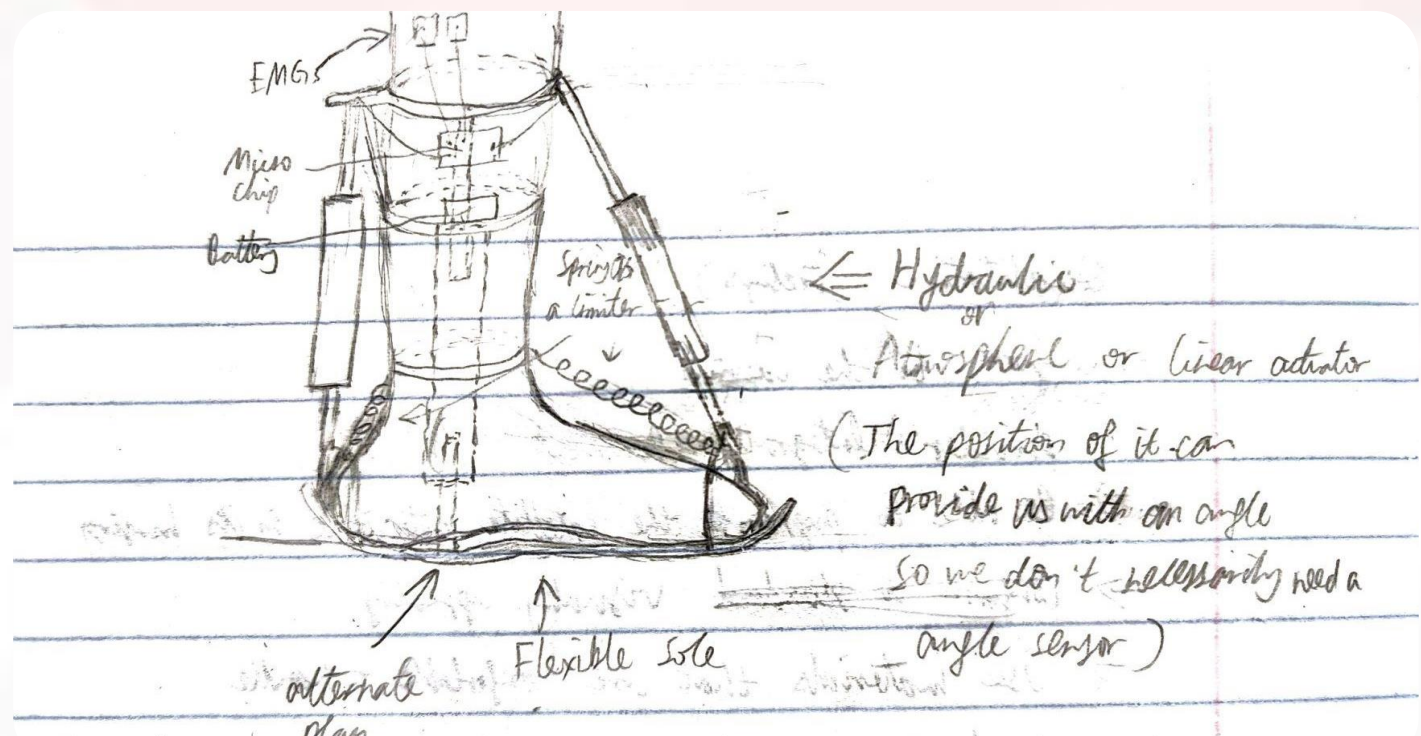 EMGs
Micro
Chip
Battery
Spring as
a limiter
<= Hydraulic
or
Atmosphere or linear actuator
(The position of it can
provide us with an angle
so we don't necessarily need a
angle sensor)
Flexible Sole
alternate
plan